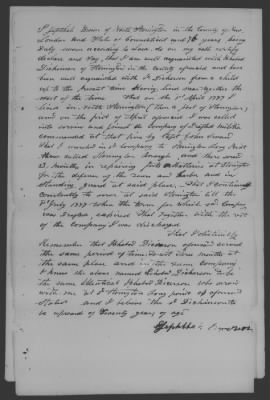 I Jephthah Brown of North Stonington in the County of New
London and State of Connecticut aged 76 years being
Duly sworn according to Law do on my oath testify
declare and say, that I am well acquainted with
Dickerson of Stonington in the County aforesaid and have
been well acquainted with Dickerson from a child
up to the present time having lived near together the
most of the time That on the 1st April 1777 I
lived in North Stonington (then a part of Stonington)
and on the first of April aforesaid I was called
into service and joined the Company of Drafted Militia
commanded at that time by Capt
that I marched in company to Stonington Long Point
then called Stonington through, and there served
3 months in repairing Batteries at Stonington
for the defence of the Town and harbor and in
Standing guard at said place. That I continued
constantly to serve at said Stonington till the
1st July 1777 when the term for which said Comp.
was Drafted, expired That together with the rest
of the company I was discharged
That I distinctly
Remember that Dickerson aforesaid served
the same period of time to wit three months at
the same place and in the same company
I know the above named Dickerson to be
the same Identical Dickerson who served
with me at Stonington Long point as aforesaid
Stated and I believe the Dickerson to
be upward of Seventy years of age
Jephthah Brown